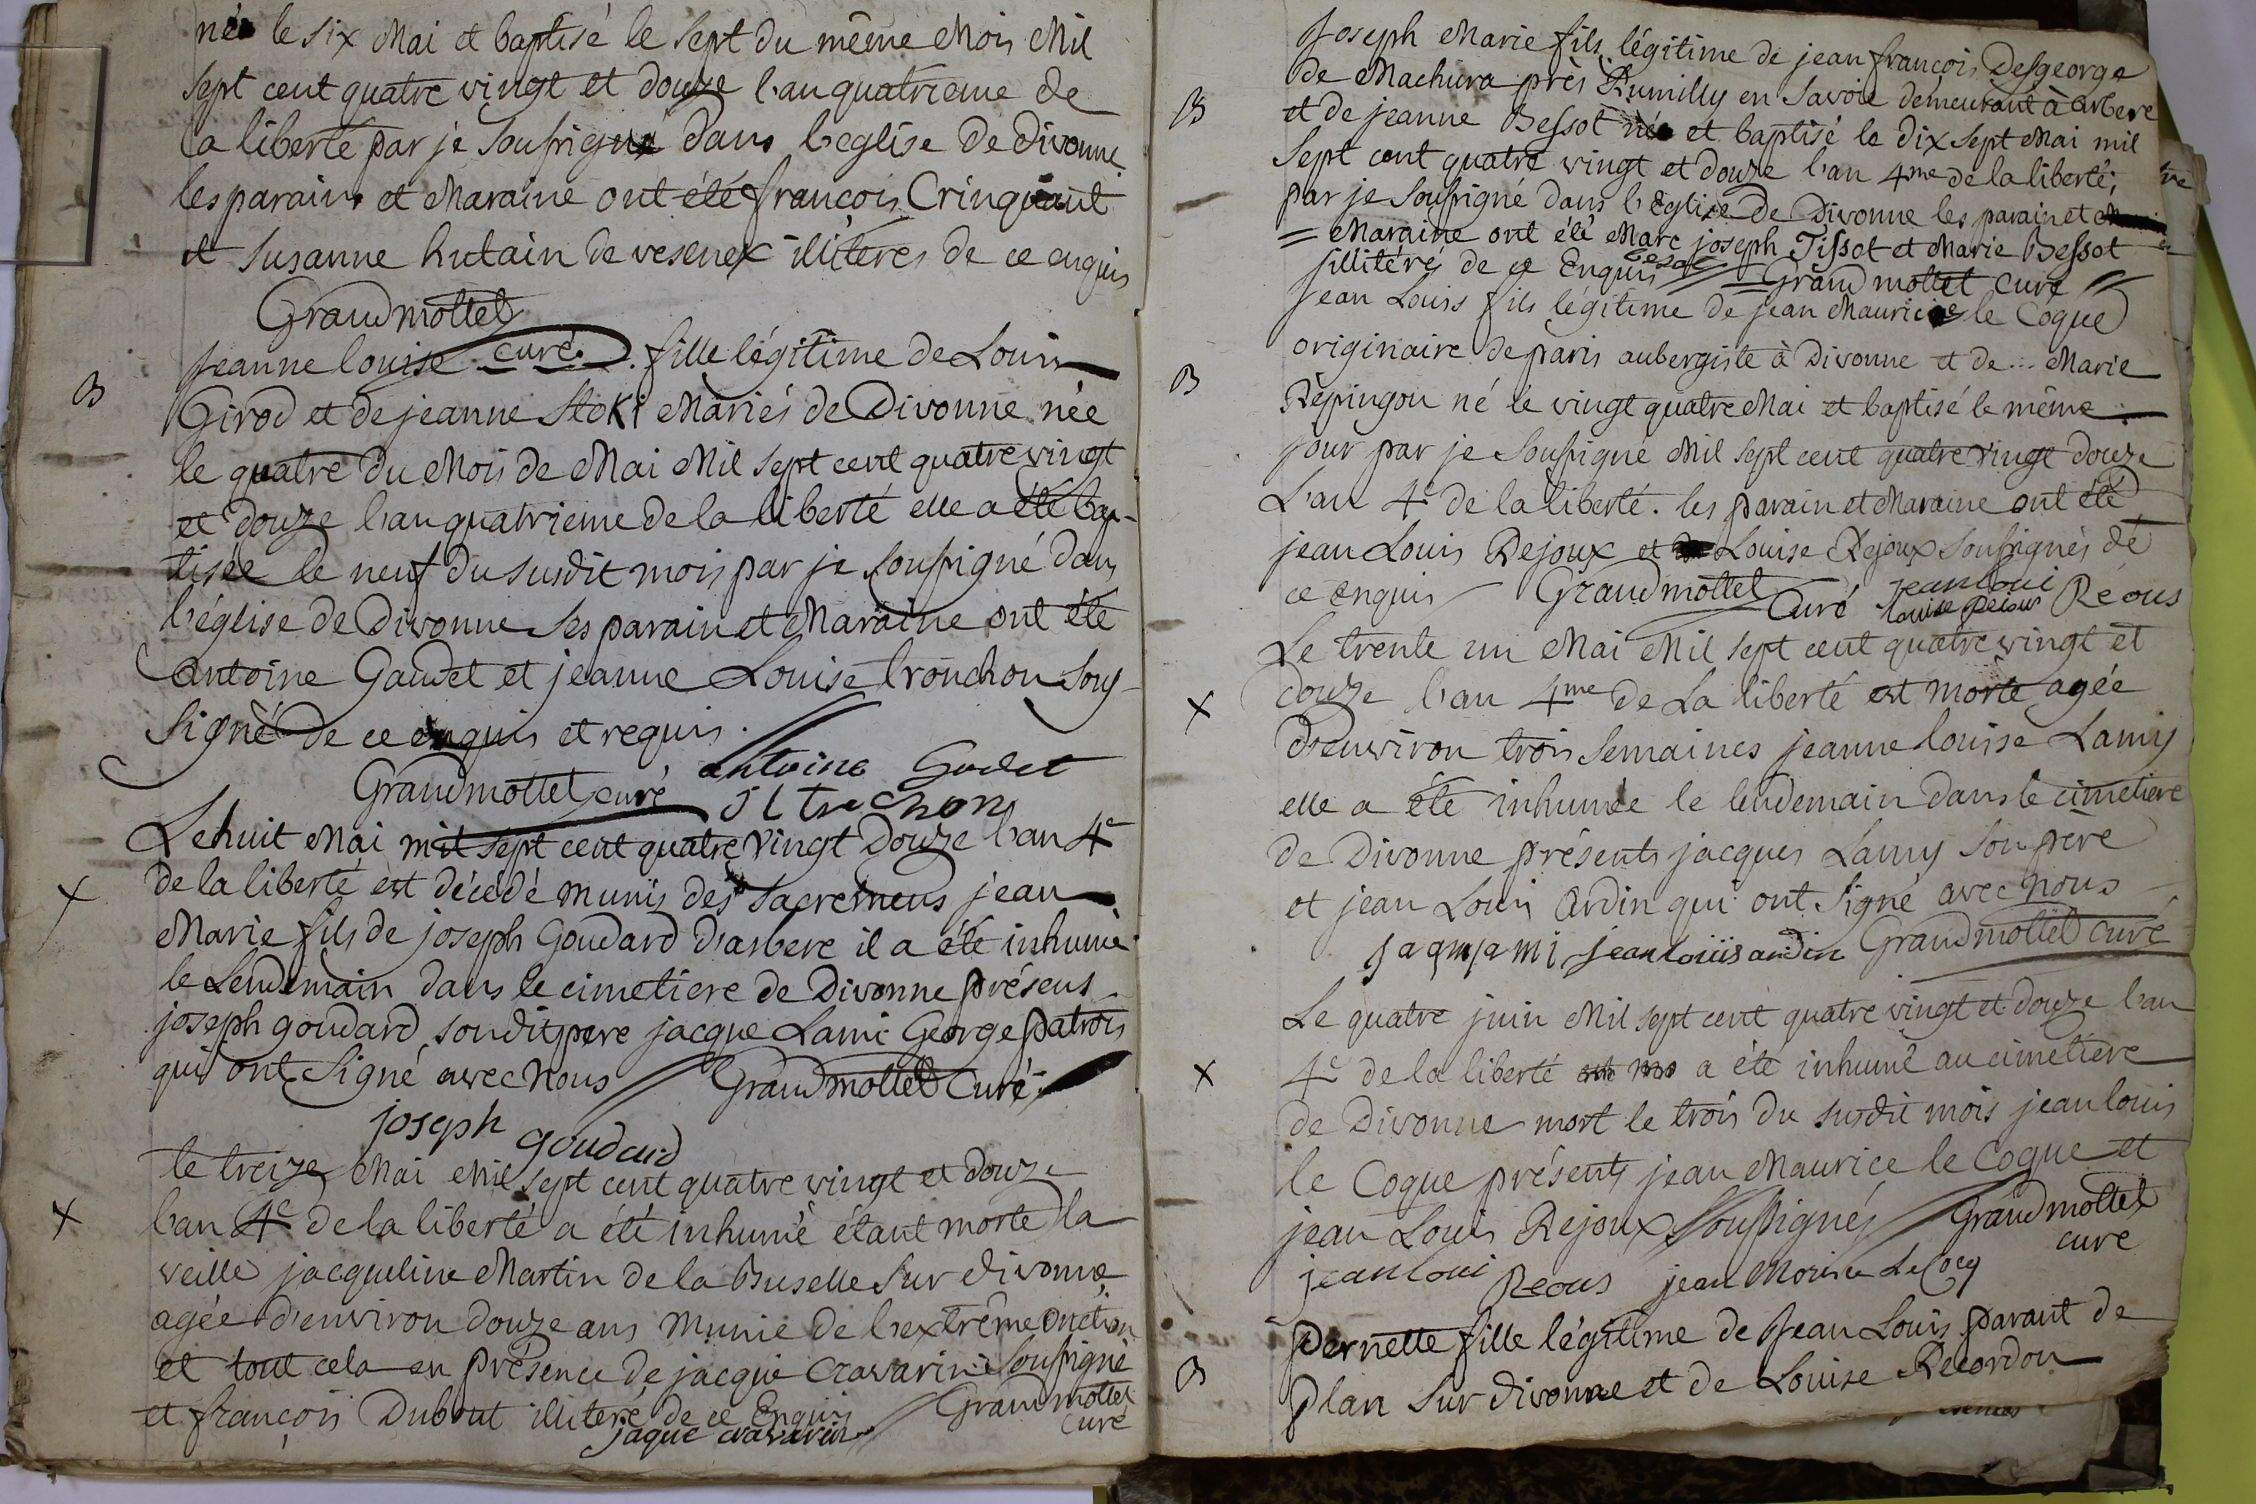 né le six Mai et baptisé le sept du même Mois Mil
sept cent quatre vingt et douze l'an quatrieme de
la liberté par je soussigné dans l'eglise de Divonne
les parain et Maraine ont été françois Cringuant
et susanne hutain de vesenex illiteres de ce enquis
Grandmottet
curé
B
jeanne louise fille légitime de Louis
Girod et de jeanne Stoki Mariés de Divonne née
le quatre du Mois de Mai Mil sept cent quatre vingt
et douze l'an quatrieme de la liberté elle a été bap-
tisée le neuf du susdit mois par je soussigné dans
l'église de Divonne ses parain et Maraine ont été
antoine Gaudet et jeanne Louise tronchon sous-
signé de ce enquis et requis.
Grandmottet curé antoine Godet
j l trochon
X
Le huit Mai mil sept cent quatre vingt Douze l'an 4e
de la liberté est décédé munis des sacremens jean
Marie fils de joseph Goudard d'arbere il a été inhumé
le Lendemain dans le cimetiere de Divonne présens
joseph goudard son dit pere jacque Lami George patrois
qui ont signé avec nous Grandmottet Curé
joseph goudard
X
le treize Mai Mil sept cent quatre vingt et douze
l'an 4e de la liberté a été inhumé étant morte la
veille jacqueline Martin de la Buselle sur divonne
agée d'environ douze ans munie de l'extrême onction
et tout cela en présence de jacque Cravarin soussigné
et françois Dubout illiteré de ce Enquis Grandmottet
curé
jaque cravarin
B
Joseph Marie fils légitime de jean françois Desgeorge
de Machura près Rumilly en Savoie demeurant à arbere
et de jeanne Bessot né et baptisé le dix sept Mai mil
sept cent quatre vingt et douze l'an 4me de la liberté;
par je soussigné dans l'Eglise de Divonne les parain et
= Maraine ont été Marc joseph Tissot et Marie Bessot
illitérés de ce Enquis = Grandmottet curé
B
Jean Louis fils légitime de jean Maurice le Coque
originaire de paris aubergiste à Divonne et de ... Marie
Répingon né le vingt quatre Mai et baptisé le même
jour par je soussigné Mil sept cent quatre vingt douze
L'an 4e de la liberté. les parain et Maraine ont été
jean Louis Rejoux et Louise Rejoux soussignés de
ce enquis Grandmottet Curé jean loui Réous
louise
X
Le trente un Mai Mil sept cent quatre vingt et
douze l'an 4me de La liberté est morte agée
d'environ trois semaines jeanne louise Lamy
elle a été inhumée le lendemain dans le cimetiere
de Divonne présents jacques Lamy son père
et jean Louis Ardin qui ont signé avec nous
jaqmjami jean louiis ardin Grandmottet curé
X
Le quatre juin Mil sept cent quatre vingt et douze l'an
4e de la liberté a été inhumé au cimetiere
de Divonne mort le trois du susdit mois jean louis
le Coque présents jean Maurice le Coque et
jean Louis Rejoux soussignés Grandmottet
curé
jean loui Reous jean Morise Le Cocq
B
Pernette fille légitime de Jean Louis paraut de
plan sur divonne et de Louise Recordon